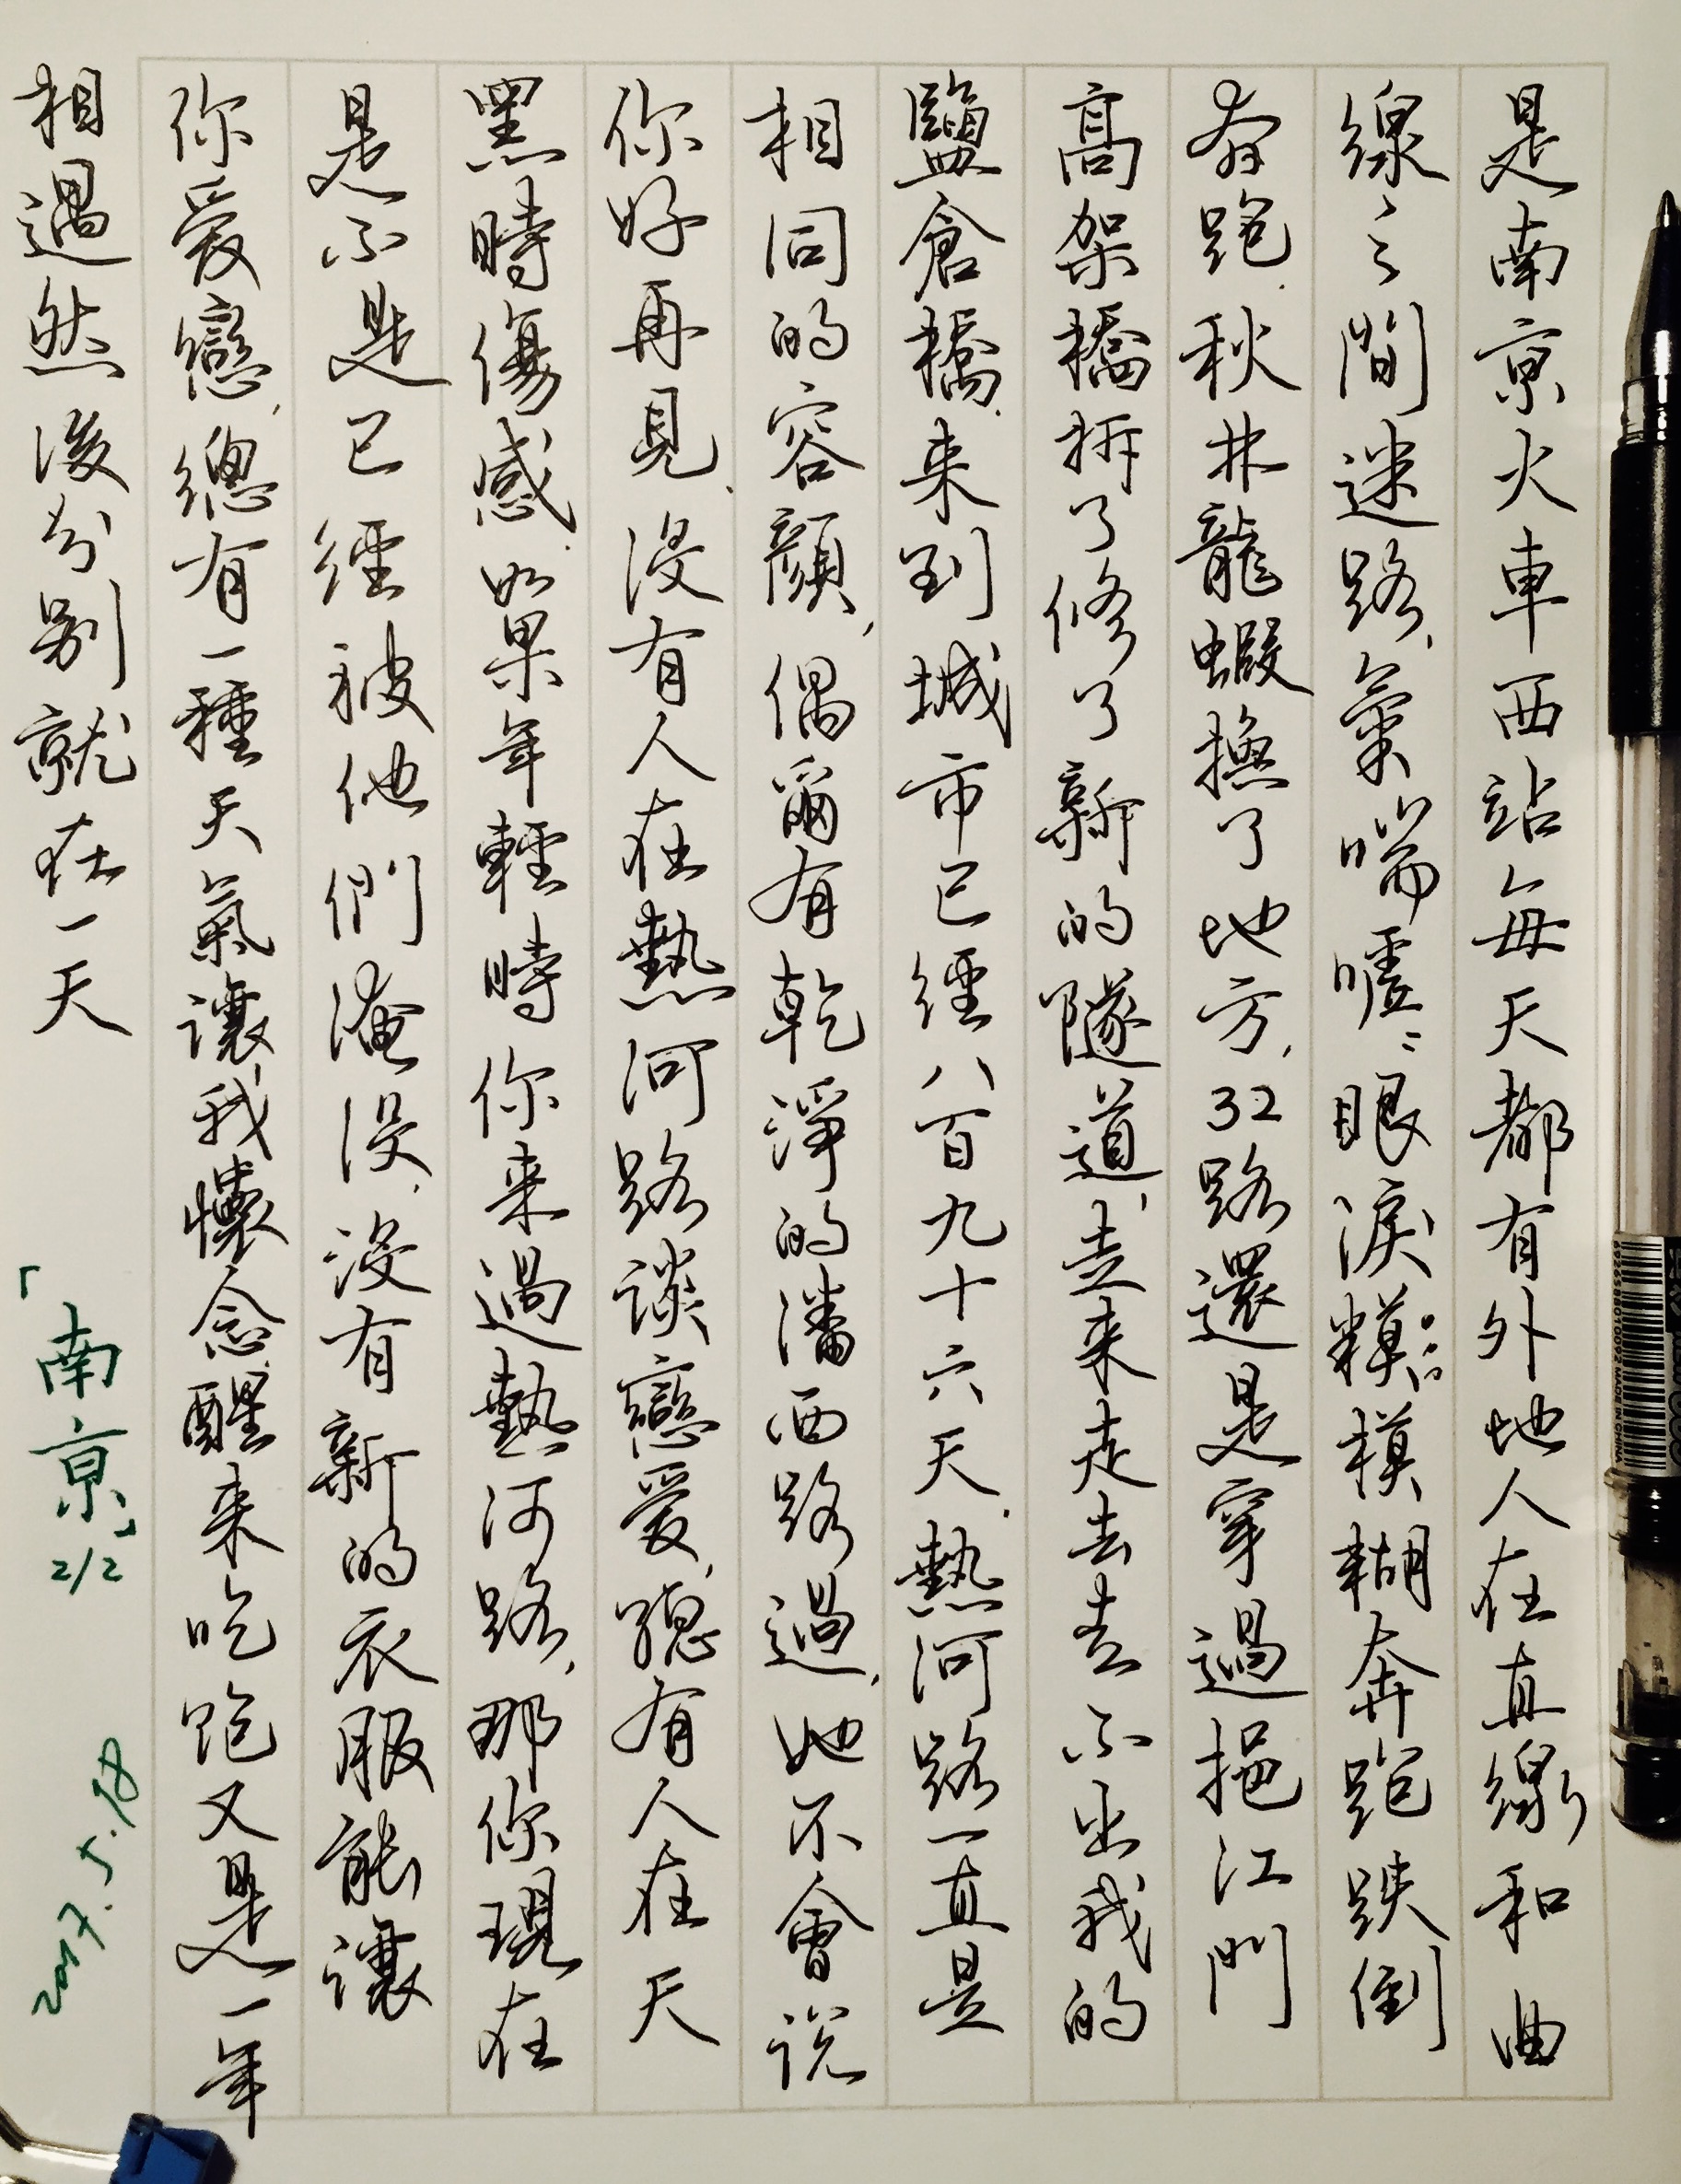 是南京火車西站每天都有外地人在直線和曲
線之間迷路、氣喘嘘〻眼淚模糊奔跑跌倒
奔跑.秋林龍蝦換了地方,32路還是穿過挹江門
高架橋拆了修了新的隧道,走来走去去不出我的
鹽倉橋.来到城市已經八百九十六天.熱河路一直是
相同的容顔,偶爾有乾淨的潘西路過,她不會說
你好再見.沒有人在熱河路談戀愛,總有人在天
黑時傷感.如果年輕時你来過熱河路,那你現在
是不是已經被他們淹没.沒有新的衣服能讓
你爱戀,總有一種天氣讓我懷念醒来吃飽又是一年
相遇然後分别就在一天
「南京」2/2
2017.5.18